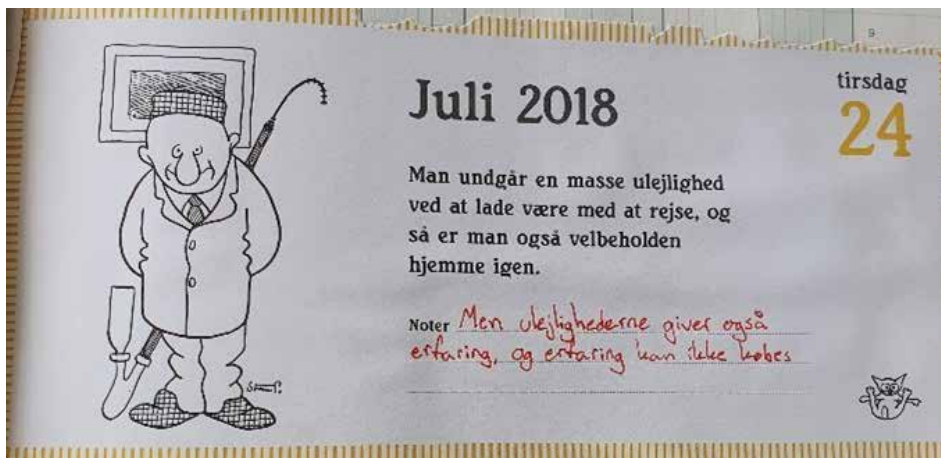 9
tirsdag
24
Juli 2018
Man undgår en masse ulejlighed
ved at lade være med at rejse, og
så er man også velbeholden
hjemme igen.
Noter Men ulejlighederne giver også
erfaring, og erfaring kan ikke købes